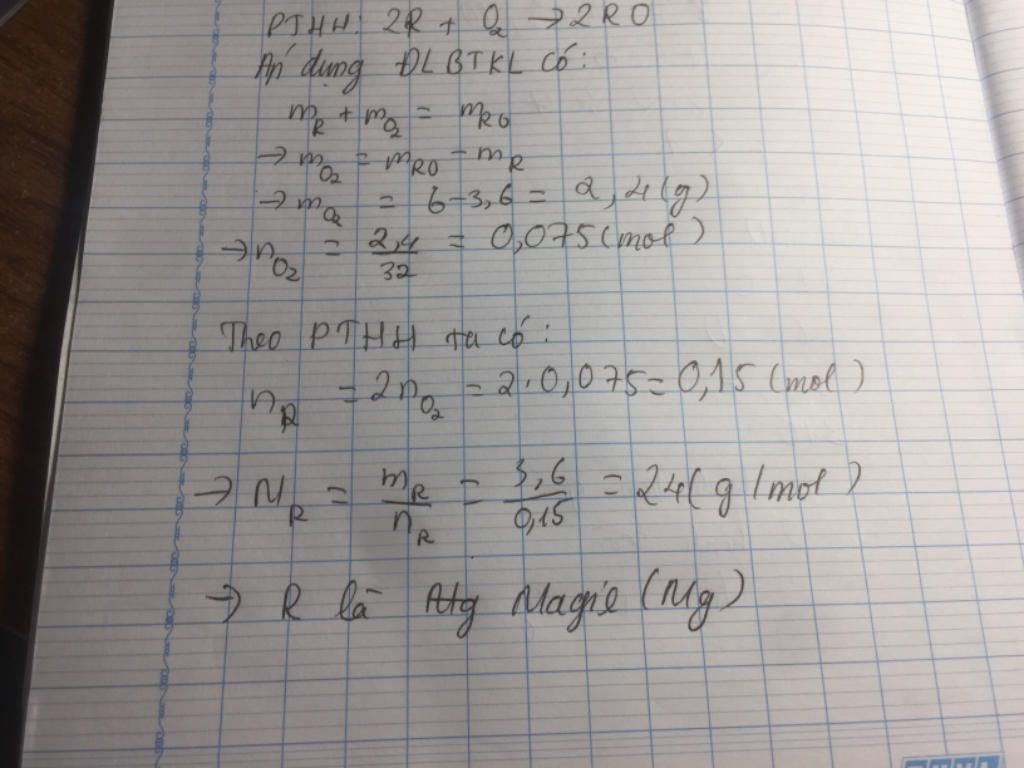 PTHH: 2R + O₂ → 2RO
Áp dụng ĐLBTKL có:
m_R + m_O₂ = m_RO
→ m_O₂ = m_RO - m_R
→ m_O₂ = 6-3,6 = 2,4(g)
→ n_O₂ = 2,4/32 = 0,075(mol)
Theo PTHH ta có:
n_R = 2n_O₂ = 2.0,075 = 0,15 (mol)
→ M_R = m_R/n_R = 3,6/0,15 = 24(g/mol)
→ R là Magiê (Mg)